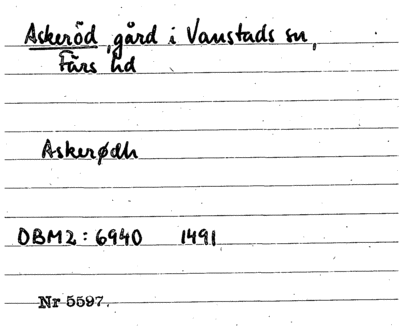 Askeröd, gård i Vanstads sn,
Färs hd
Askerødh
DBM2: 6940 1491
Nr 5597.